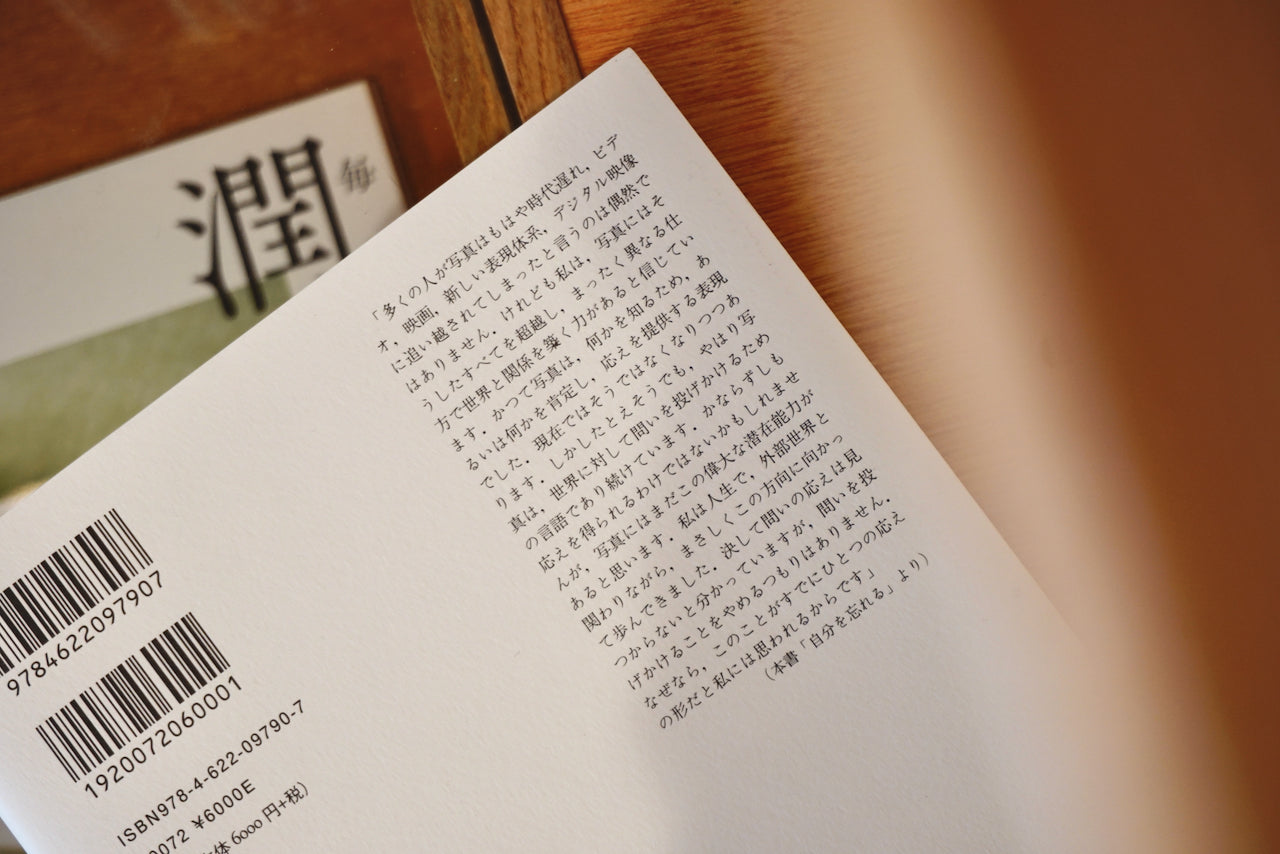 潤
毎
「多くの人が写真はもはや時代遅れ，ビデ
オ，映画，新しい表現体系，デジタル映像
に追い越されてしまったと言うのは偶然で
はありません．けれども私は，写真にはそ
うしたすべてを超越し，まったく異なる仕
方で世界と関係を築く力があると信じてい
ます．かつて写真は，何かを知るため，あ
るいは何かを肯定し，応えを提供する表現
でした．現在ではそうではなくなりつつあ
ります．しかしたとえそうでも，やはり写
真は，世界に対して問いを投げかけるため
の言語であり続けています．かならずしも
応えを得られるわけではないかもしれませ
んが，写真にはまだこの偉大な潜在能力が
あると思います．私は人生で，外部世界と
関わりながら，まさしくこの方向に向かっ
て歩んできました．決して問いの応えは見
つからないと分かっていますが，問いを投
げかけることをやめるつもりはありません．
なぜなら，このことがすでにひとつの応え
の形だと私には思われるからです」
（本書「自分を忘れる」より）
9784622097907
1920072060001
ISBN978-4-622-09790-7
0072 ¥6000E
体 6000 円+税）